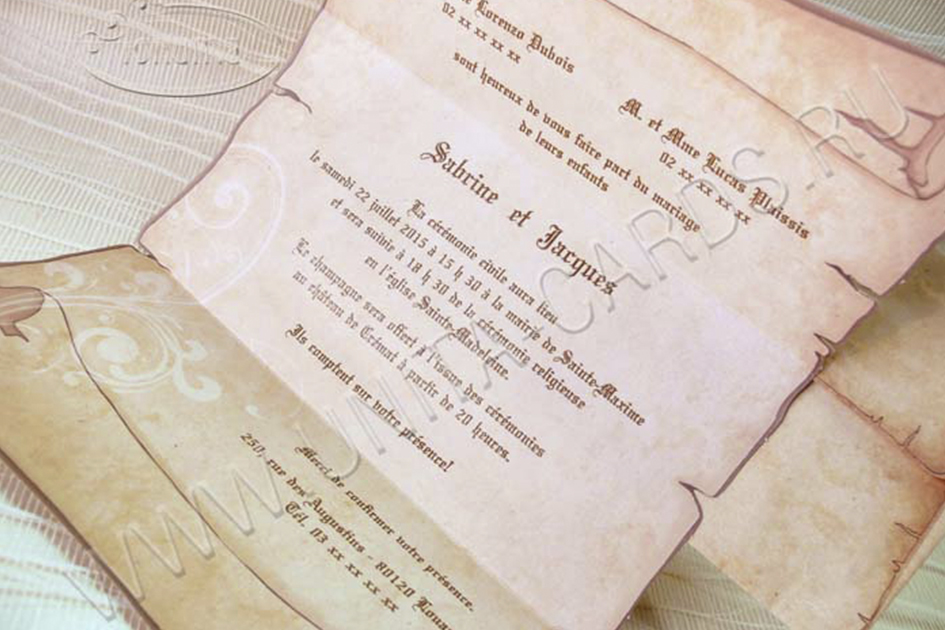 Lorenzo Dubois
02 xx xx xx xx
M. et Mme Lucas Plaissis
02 xx xx xx xx
sont heureux de vous faire part du mariage
de leurs enfants
Sabrine et Jacques
La cérémonie civile aura lieu
le samedi 22 juillet 2015 à 15 h 30 à la mairie de Sainte-Maxime
et sera suivie à 18 h 30 de la cérémonie religieuse
en l'église Sainte-Madeleine.
Le champagne sera offert à l'issue des cérémonies
au château de Crémat à partir de 20 heures.
Ils comptent sur votre présence!
Merci de confirmer votre présence.
250, rue des Augustins - 80120
Tél. 03 xx xx xx xx
WWW.UNITA-CARDS.RU